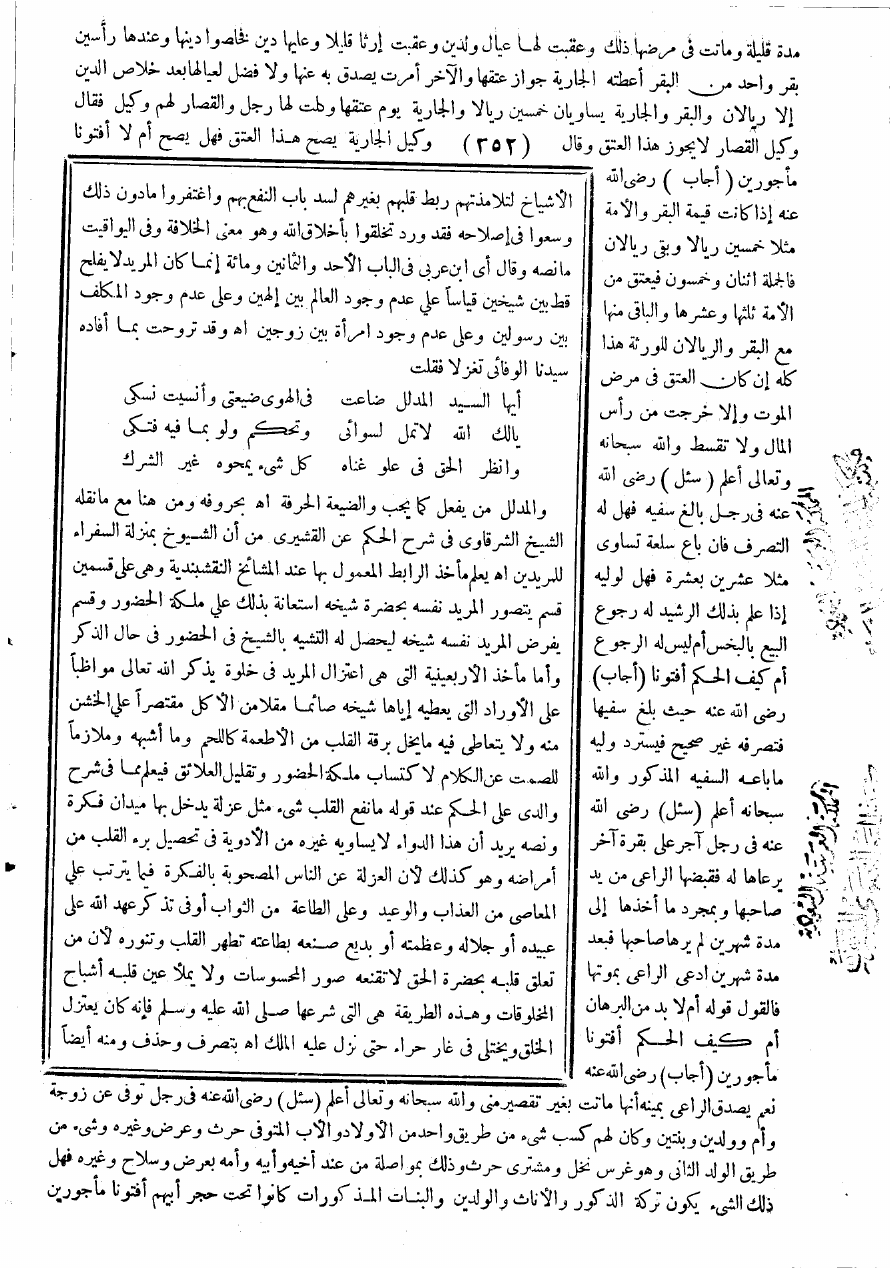 مدة قليلة وماتت فى مرضها ذلك وعقبت لهـا عيال ولدين وعقبت إرثا قليلا وعليها دين نخاصوا دينها وعندها رأسين
بقر واحد من البقر أعطته الجارية جواز عتقها والآخر أمرت يصدق به عنها ولا فضل لعيالها بعد خلاص الدين
إلا ريالان والبقر والجارية يساويان خمسين ريالا والجارية يوم عتقها ولت لها رجل والقصار لهم وكيل فقال
وكيل القصار لا يجوز هذا العتق وقال (٢٥٢) وكيل الجارية يصح هـذا العتق فهل يصح أم لا أفتونا
مأجورين (أجاب) رضى الله
عنه إذا كانت قيمة البقر والأمة
مثلا خمسين ريالا وبقى ريالان
فالجملة اثنان وخمسون فيعتق من
الأمة ثلثها وعشرها والباقى منها
مع البقر والريالان للورثة هذا
كله إن كان العتق فى مرض
الموت وإلا خرجت من رأس
المال ولا تقسط والله سبحانه
وتعالى أعلم (سئل) رضى الله
عنه فى رجـل بالغ سفيه فهل له
التصرف فان باع سلعة تساوى
مثلا عشرين بعشرة فهل لوليه
إذا علم بذلك الرشيد له رجوع
البيع بالبخس أم ليس له الرجوع
أم كيف الحـكم أفتونا (أجاب)
رضى الله عنه حيث بلغ سفيها
فتصرفه غير صحيح فيسترد وليه
ما باعـه السفيه المذكور والله
سبحانه أعلم (سئل) رضى الله
عنه فى رجل آجر على بقرة آخر
يرعاها له فقبضها الراعى من يد
صاحبها وبمجرد ما أخذها إلى
مدة شهرين لم يرها صاحبها فبعد
مدة شهرين ادعى الراعى بموتها
فالقول قوله أم لا بد من البرهان
أم كيف الحـكم أفتونا
مأجورين (أجاب) رضى الله عنه
الأشياخ لتلامذتهم ربط قلبهم بغيرهم لسد باب النفع بهم واغتفروا مادون ذلك
وسعوا فى إصلاحه فقد ورد تخلقوا بأخلاق الله وهو معنى الخلافة وفى اليواقيت
مانصه وقال أى ابن عربى فى الباب الأحد والثمانين ومائة إنمـا كان المريد لا يفلح
قط بين شيخين قياساً على عدم وجود العالم بين إلهين وعلى عدم وجود المكلف
بين رسولين وعلى عدم وجود امرأة بين زوجين اه وقد تروحت بمـا أفاده
سيدنا الوفائى تغزلا فقلت
أيها السـيد المدلل ضاعت فى الهوى ضيعتى وأنسيت نسكى
يالك الله لا تمل لسوائى وتحكم ولو بمـا فيه فتـكى
وانظر الحق فى علو غناه كل شىء يمحوه غير الشرك
والمدلل من يفعل كما يحب والضيعة الحرفة اه بحروفه ومن هنا مع مانقله
الشيخ الشرقاوى فى شرح الحكم عن القشيرى من أن الشـيوخ بمنزلة السفراء
للمريدين اه يعلم مأخذ الرابط المعمول بها عند المشائخ النقشبندية وهى على قسمين
قسم يتصور المريد نفسه بحضرة شيخه استعانة بذلك على ملـكة الحضور وقسم
يفرض المريد نفسه شيخه ليحصل له التشبه بالشيخ فى الحضور فى حال الذكر
وأما مأخذ الأربعينية التى هى اعتزال المريد فى خلوة يذكر الله تعالى مواظباً
على الأوراد التى يعطيه إياها شيخه صائمـا مقلا من الأكل مقتصراً على الخشن
منه ولا يتعاطى فيه ما يخل برقة القلب من الأطعمة كاللحم وما أشبهه وملازماً
للصمت عن الكلام لاكتساب ملـكة الحضور وتقليل العلائق فيعلم ممـا فى شرح
والدى على الحـكم عند قوله مانفع القلب شىء مثل عزلة يدخل بها ميدان فـكرة
ونصه يريد أن هذا الدواء لا يساويه غيره من الأدوية فى تحصيل برء القلب من
أمراضه وهو كذلك لأن العزلة عن الناس المصحوبة بالفـكرة فيما يترتب على
المعاصى من العذاب والوعيد وعلى الطاعة من الثواب أو فى تذكر عهد الله على
عبيده أو جلاله وعظمته أو بديع صـنعه بطاعته تطهر القلب وتنوره لأن من
تعلق قلبـه بحضرة الحق لا تقنعه صور المحسوسات ولا يملأ عين قلبـه أشباح
المخلوقات وهـذه الطريقة هى التى شرعها صـلى الله عليه وسـلم فإنه كان يعتزل
الخلق ويختلى فى غار حراء حتى نزل عليه الملك اه بتصرف وحذف ومنه أيضاً
نعم يصدق الراعى بيمينه أنها ماتت بغير تقصير منى والله سبحانه وتعالى أعلم (سئل) رضى الله عنه فى رجل توفى عن زوجة
وأم وولدين وبنتين وكان لهم كسب شىء من طريق واحد من الأولاد والأب المتوفى حرث وعرض وغيره وشىء من
طريق الولد الثانى وهو غرس نخل ومشترى حرث وذلك بمواصلة من عند أخيه وأبيه وأمه بعرض وسلاح وغيره فهل
ذلك الشىء يكون تركة الذكور والأناث والولدين والبنات المـذكورات كانوا تحت حجر أبيهم أفتونا مأجورين